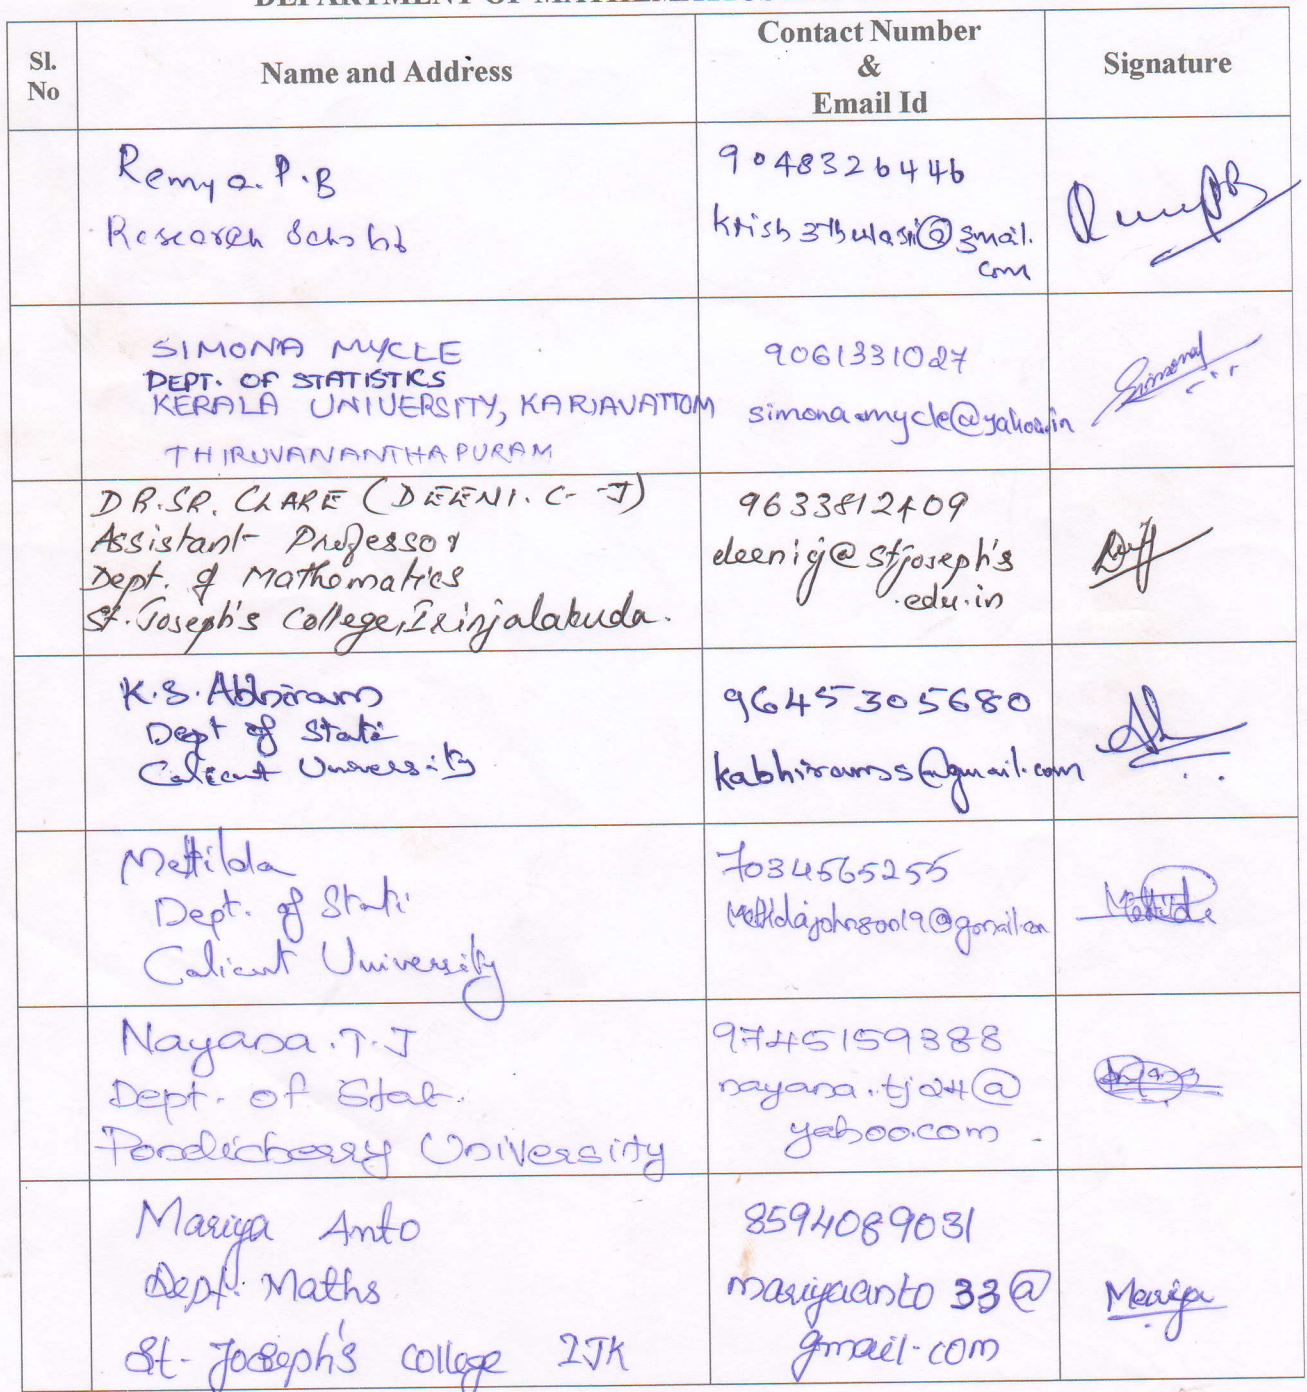 DEPARTMENT OF MATHEMATICS
Sl. No
Name and Address
Contact Number
&
Email Id
Signature
Remya. P.B
Research Scholar
9048326446
krish3thulasi@gmail.
com
SIMONA MYCLE
DEPT. OF STATISTICS
KERALA UNIVERSITY, KARIAVATTOM
THIRUVANANTHAPURAM
9061331027
simona.mycle@yahoo.in
Simona
DR.SR. CLARE (DEENI. C. J)
Assistant Professor
Dept. of Mathematics
St. Joseph's College, Irinjalakuda.
9633812409
deenicj@stjoseph's
.edu.in
K.S. Abhiram
Dept of Stati
Calicut University
9645305680
kabhiramss@gmail.com
Mettilda
Dept. of Stati
Calicut University
7034565255
Mettilda
Nayana.T.J
Dept. of Stat.
Pondicherry University
9745159388
nayana.tj24@
yahoo.com
Mariya Anto
Dept. Maths
St-Joseph's college IJK
8594089031
mariyaanto33@
gmail.com
Mariya